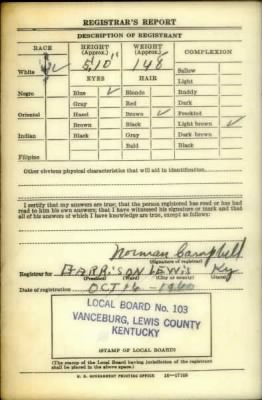 REGISTRAR'S REPORT
DESCRIPTION OF REGISTRANT
RACE HEIGHT (Approx.) WEIGHT (Approx.) COMPLEXION
White ✓ 5'10" 148 Sallow
EYES HAIR Light
Negro Blue ✓ Blonde Ruddy
Gray Red Dark
Oriental Hazel Brown ✓ Freckled
Brown Black Light brown ✓
Indian Black Gray Dark brown
Bald Black
Filipino
Other obvious physical characteristics that will aid in identification
I certify that my answers are true; that the person registered has read or has had
read to him his own answers; that I have witnessed his signature or mark and that
all of his answers of which I have knowledge are true, except as follows:
Norman Campbell
(Signature of registrar)
Registrar for HARRISON LEWIS Ky
(Precinct) (Ward) (City or county) (State)
Date of registration OCT 16 - 1940
LOCAL BOARD No. 103
VANCEBURG, LEWIS COUNTY
KENTUCKY
(STAMP OF LOCAL BOARD)
(The stamp of the Local Board having jurisdiction of the registrant
shall be placed in the above space.)
U. S. GOVERNMENT PRINTING OFFICE 16—17105